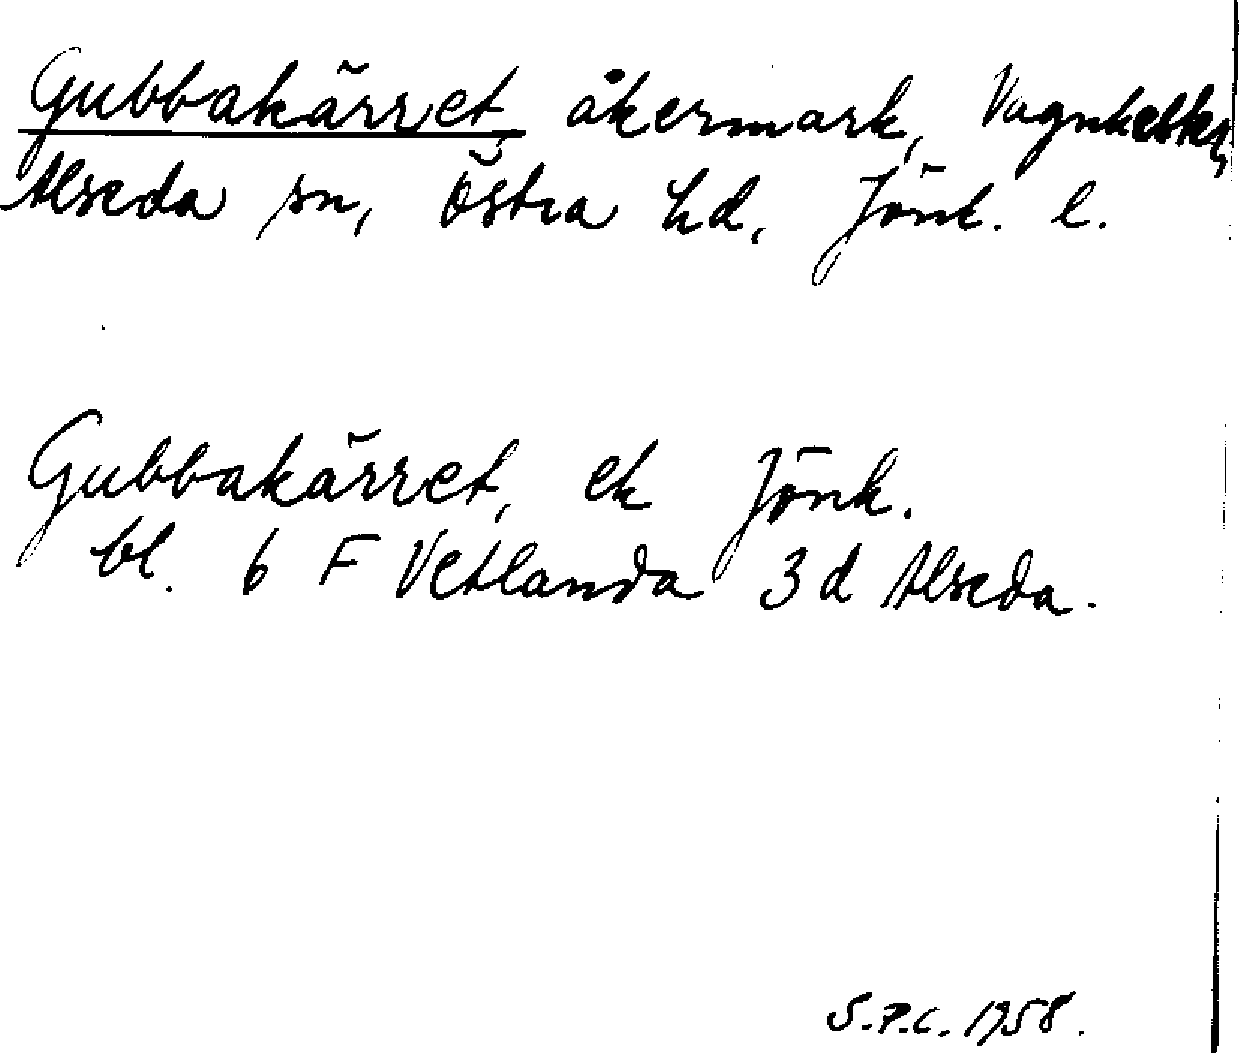 Gubbakärret, åkermark,
Alseda sn, Östra hd, Jönk. l.
Gubbakärret, ek Jönk.
bl. 6 F Vetlanda 3d Alseda.
S.P.C. 1958.